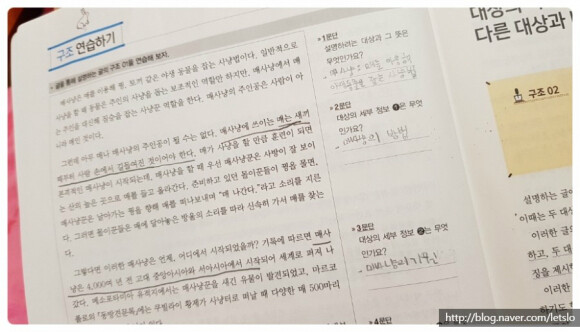 구조 연습하기
글을 통해 설명하는 글의 구조 ①을 연습해 보자.
매사냥은 매를 이용해 꿩, 토끼 같은 야생 동물을 잡는 사냥법이다. 일반적으로
사냥을 할 때 동물은 주인의 사냥을 돕는 보조적인 역할만 하지만, 매사냥에서 매
는 주인을 대신해 짐승을 잡는 사냥꾼 역할을 한다. 매사냥의 주인공은 사람이 아
니라 매인 것이다.
그런데 아무 매나 매사냥의 주인공이 될 수는 없다. 매사냥에 쓰이는 매는 새끼
때부터 사람 손에서 길들여진 것이어야 한다. 매가 사냥을 할 만큼 훈련이 되면
본격적인 매사냥이 시작되는데, 매사냥을 할 때 우선 매사냥꾼은 사방이 잘 보이
는 산의 높은 곳으로 매를 들고 올라간다. 준비하고 있던 몰이꾼들이 꿩을 몰면,
매사냥꾼은 날아가는 꿩을 향해 매를 떠나보내며 “매 나간다.”라고 소리를 지른
다. 그러면 몰이꾼들은 매에 달아놓은 방울의 소리를 따라 신속히 가서 매를 찾는
다.
그렇다면 이러한 매사냥은 언제, 어디에서 시작되었을까? 기록에 따르면 매사
냥은 4,000여 년 전 고대 중앙아시아와 서아시아에서 시작되어 세계로 퍼져 나
갔다. 메소포타미아 유적지에서는 매사냥꾼을 새긴 유물이 발견되었고, 마르코
폴로의 「동방견문록」에는 쿠빌라이 황제가 사냥터로 떠날 때 다양한 매 500마리
▶1문단
설명하려는 대상과 그 뜻은
무엇인가요?
매사냥, 매를 이용해
야생동물을 잡는 사냥법
▶2문단
대상의 세부 정보 ❶은 무엇
인가요?
매사냥의 방법
▶3문단
대상의 세부 정보 ❷는 무엇
인가요?
매사냥의 기원
▶4문단
대상의
다른 대상과
구조 02
설명하는 글이
이때는 두 대상
이러한
하고, 두
징을 제시
이러한
하기도
http://blog.naver.com/letslo